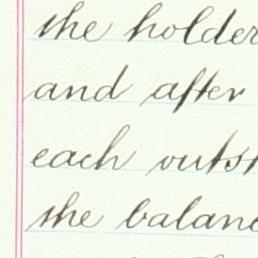 the holder
and after
each outst
the balanc